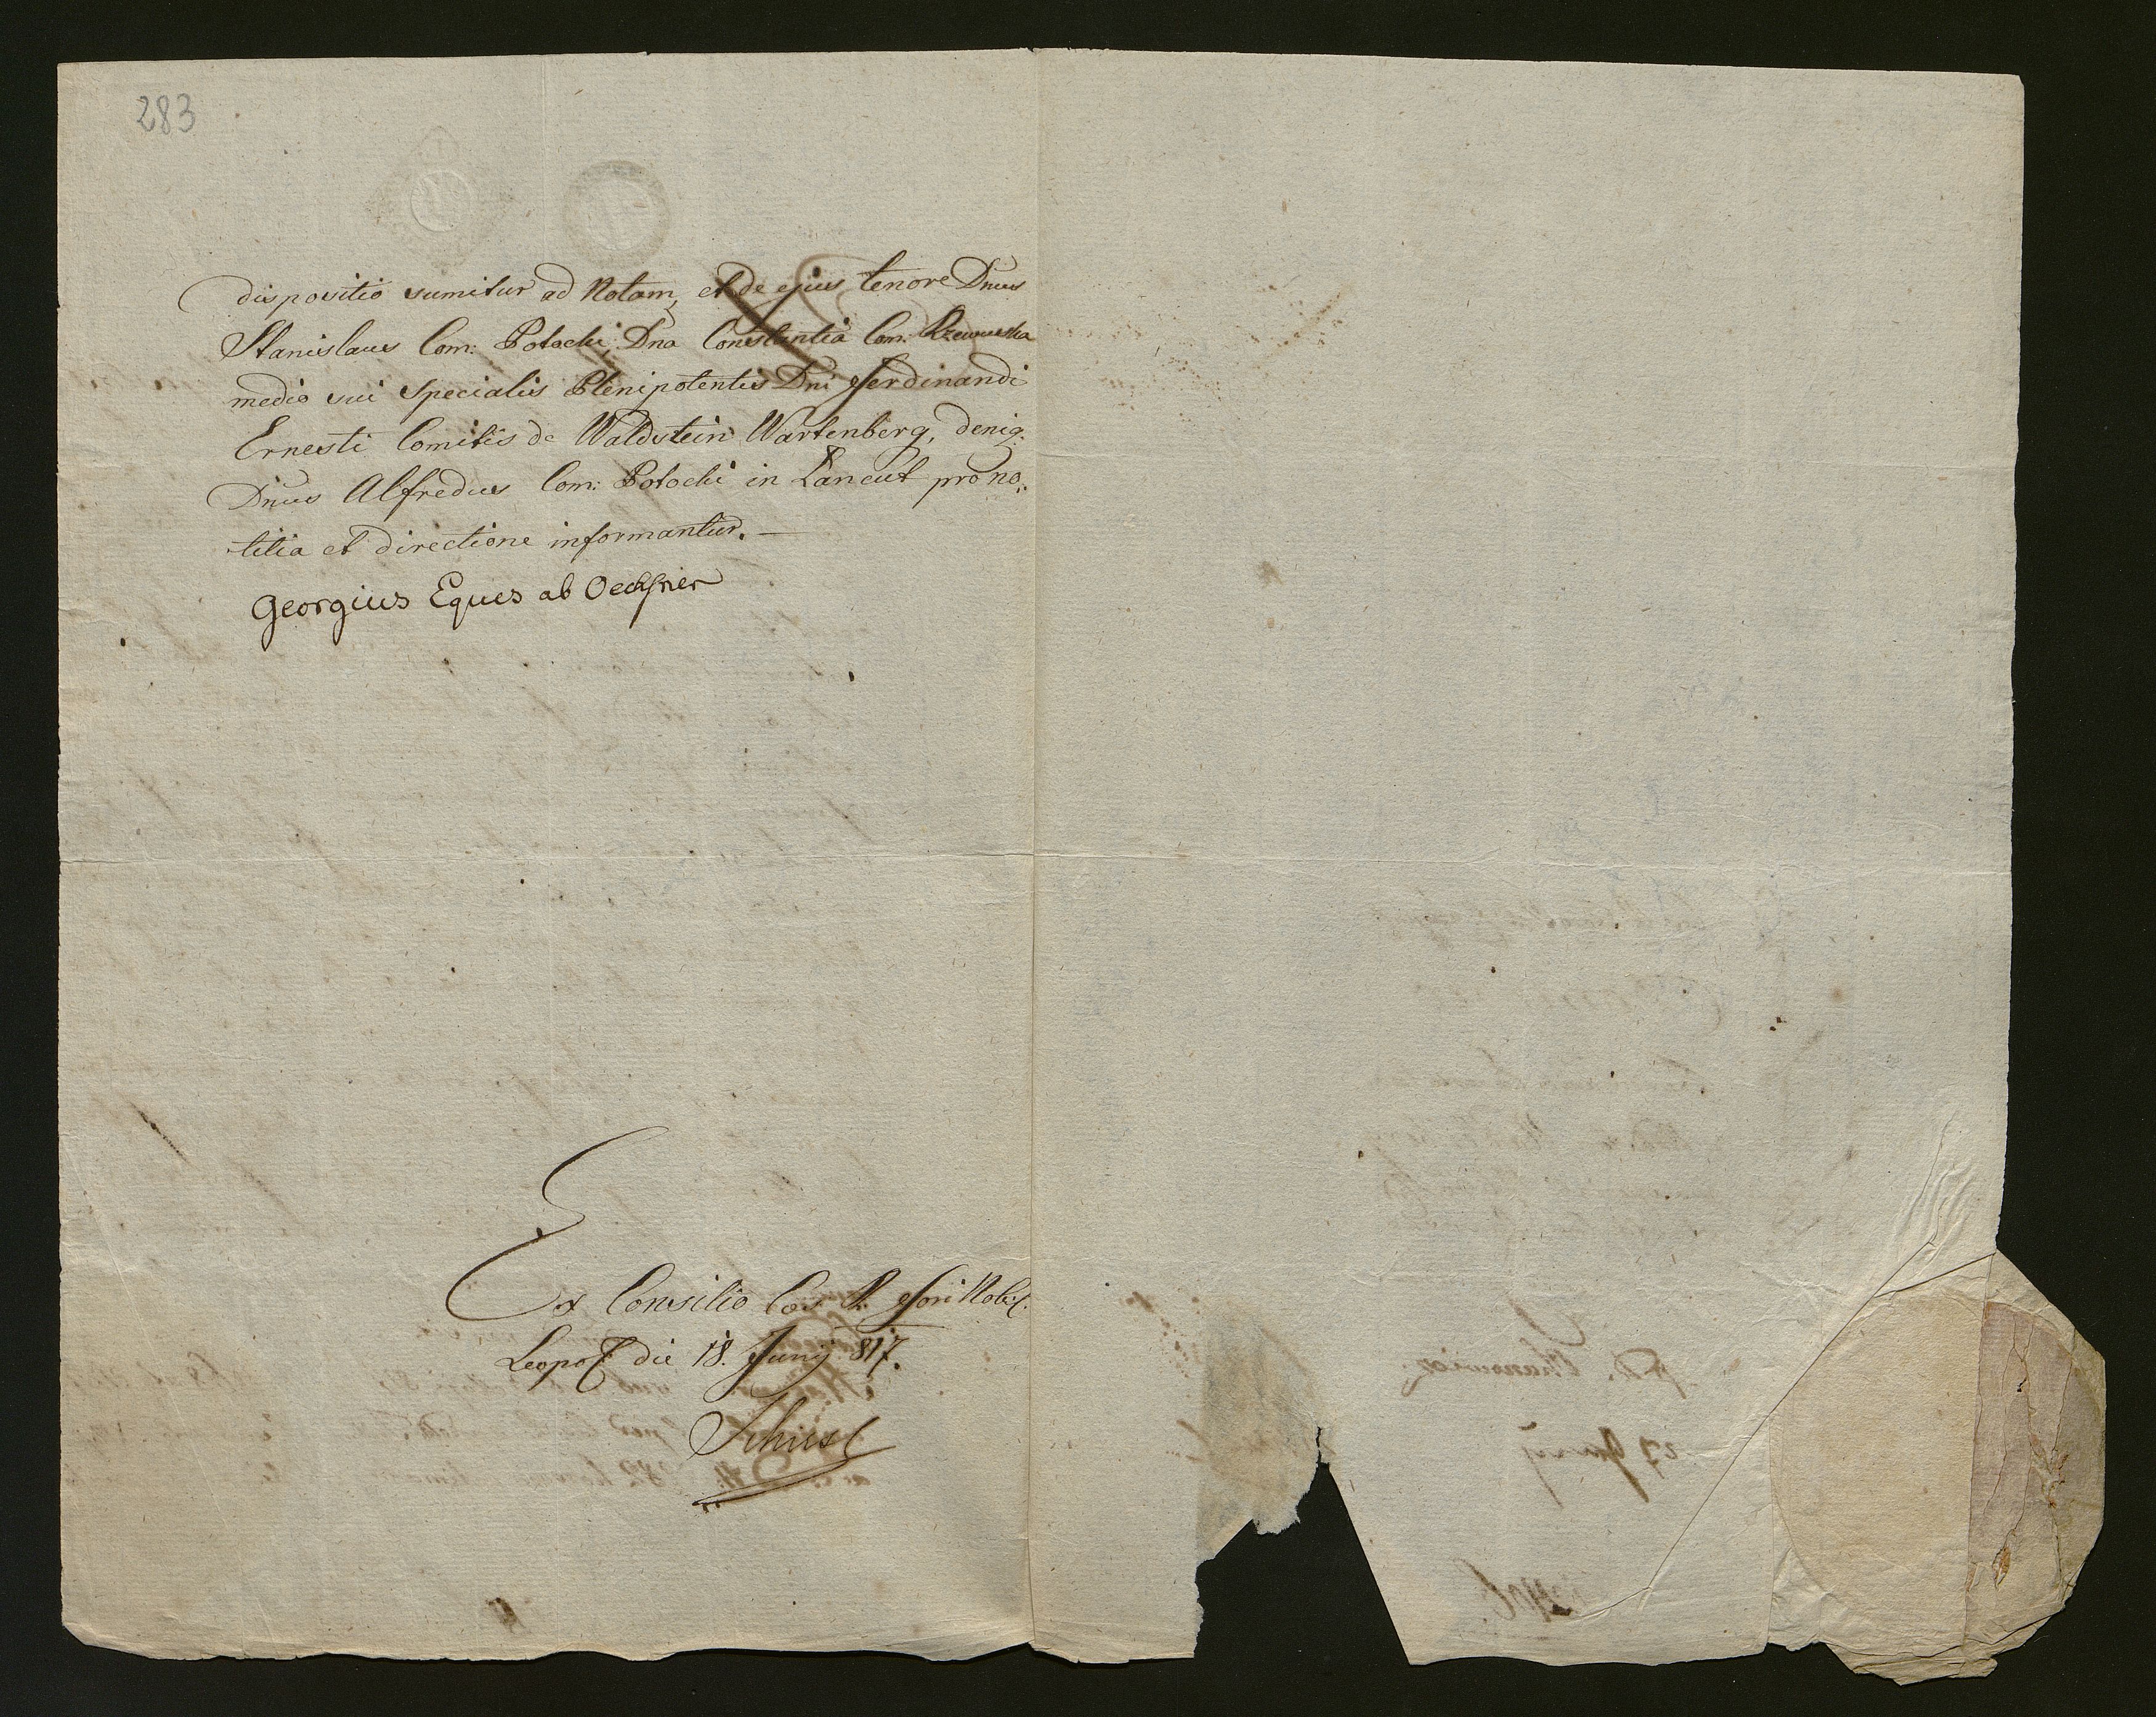 283
dispositio sumitur ad Notam, et de ejus tenore Dnus
Stanislaus Com: Potocki, Dna Constantia Com: Rzewuska
medio sui specialis Plenipotentis Dni Ferdinandi
Ernesti Comitis de Waldstein Wartenberg, deniq:
Dnus Alfredus Com: Potocki in Łancut pro no„
titia et directione informantur.—
Georgius Eques ab Oechsner
Ex Consilio Caes. R. Fori Nobil.
Leopol die 18. Junij 817.
27 Junij